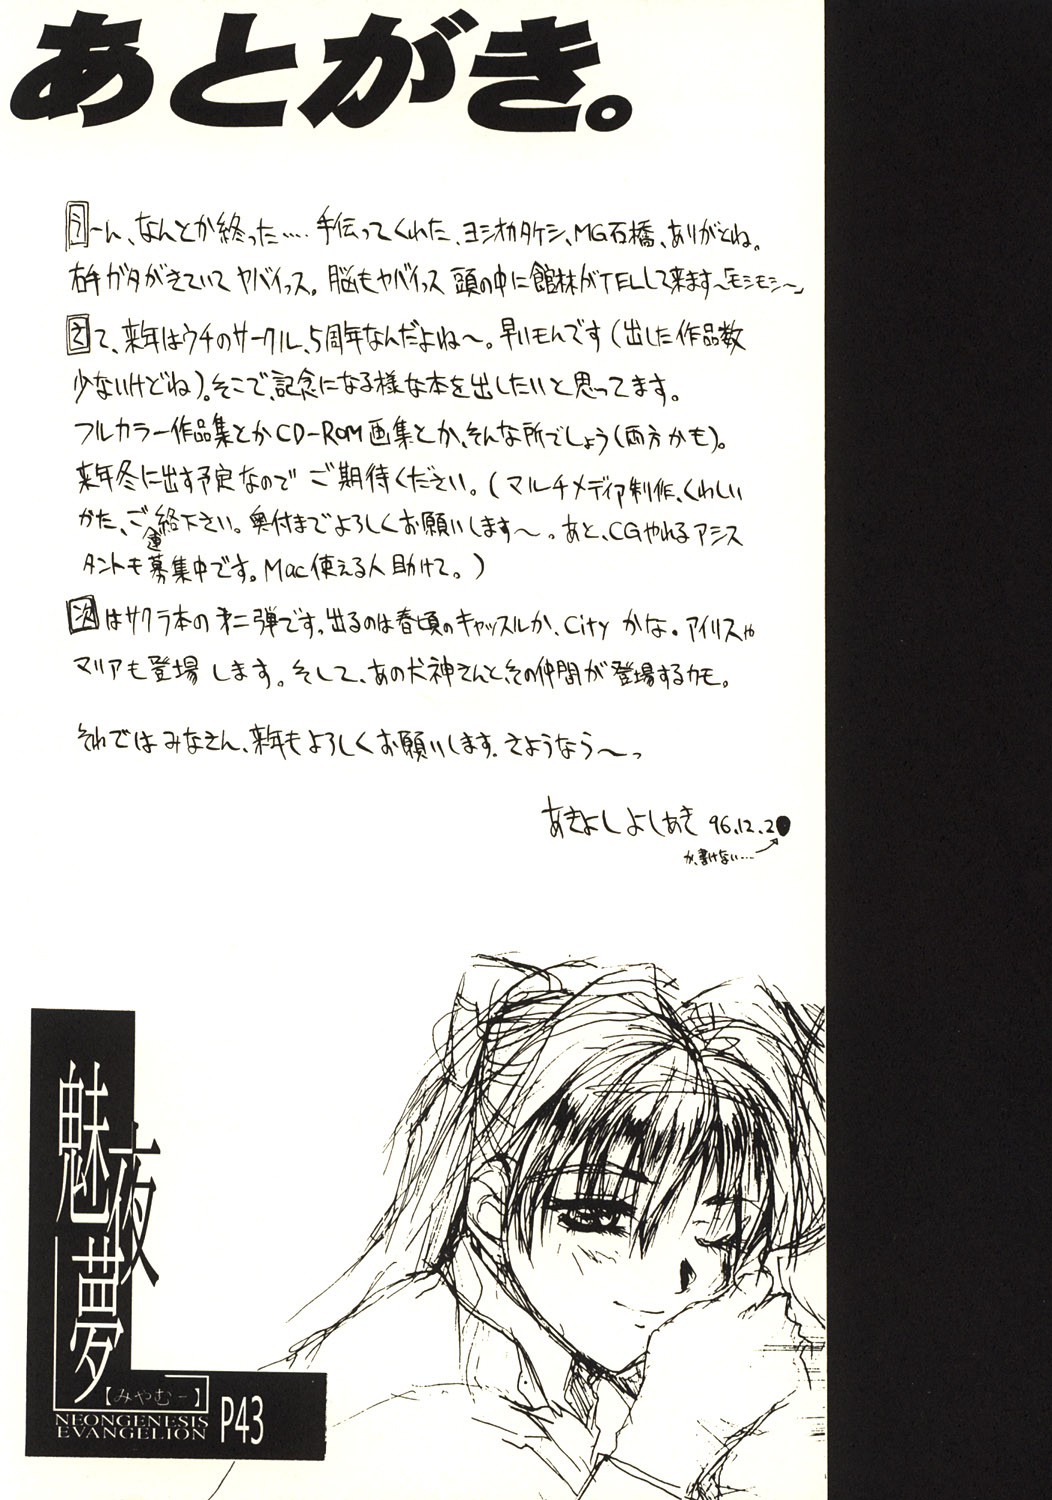 あとがき。
うーん、なんとか終った‥‥手伝ってくれた、ヨシオカタケシ、MG石橋、ありがとね。
右手ガタがきていてヤバイっス。脳もヤバイっス 頭の中に館林がTELして来ます〜「モシモシ〜」
さて、来年はウチのサークル、5周年なんだよね〜。早いモんです(出した作品数
少ないけどね)。そこで、記念になる様な本を出したいと思ってます。
フルカラー作品集とかCD-ROM画集とか、そんな所でしょう(両方かも)。
来年冬に出す予定なので ご期待ください。(マルチメディア制作、くわしい
かた、ご連絡下さい。奥付までよろしくお願いします〜。あと、CGやれるアシス
タントも募集中です。Mac使える人助けて。)
次はサクラ本の第二弾です。出るのは春頃のキャッスルか、Cityかな。アイリスや
マリアも登場します。そして、あの犬神さんと、その仲間が登場するカモ。
それではみなさん、来年もよろしくお願いします。さようなら〜っ
あきよしよしあき 96.12.2
が、書けない…
魅夜夢
【みやむー】
NEONGENESIS
EVANGELION
P43